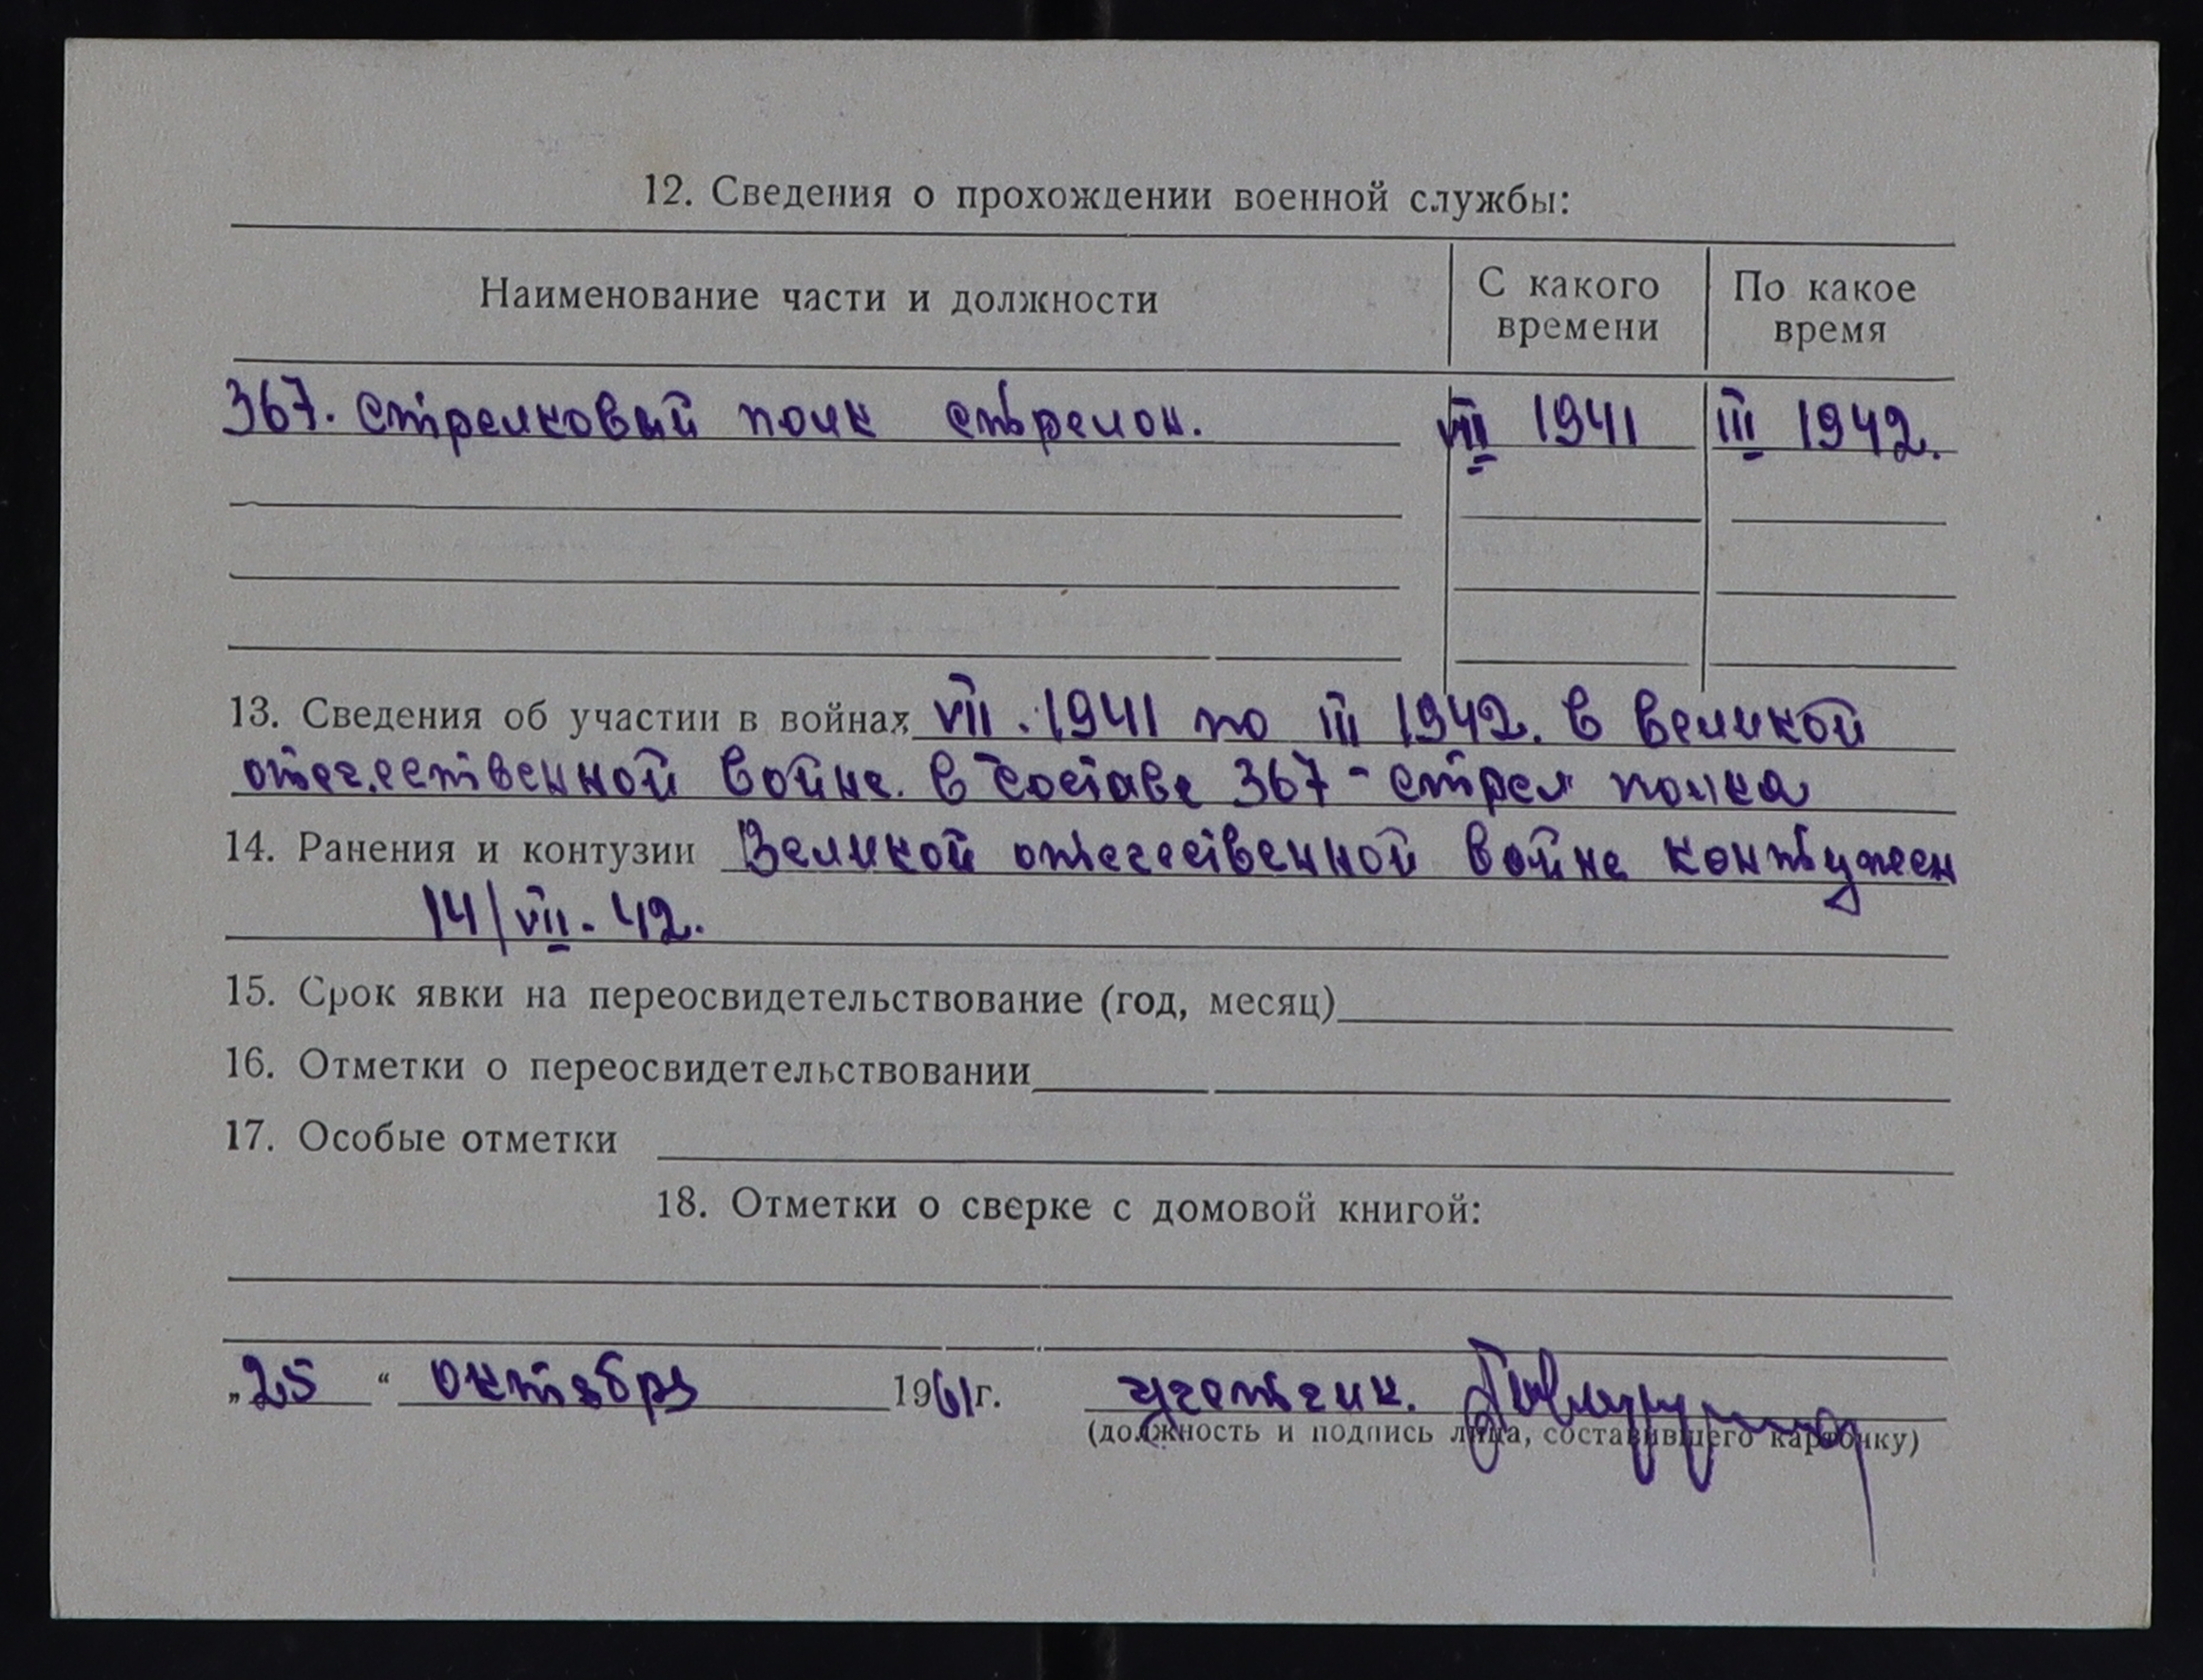 12. Сведения о прохождении военной службы:
Наименование части и должности
С какого времени
По какое время
367. стрелковый полк стрелок. VIII 1941 III 1942.
13. Сведения об участии в войнах VII. 1941 по III 1942. в великой
отечественной войне. в составе 367 - стрел полка
14. Ранения и контузии Великой отечественной войне контужен
14/VII - 42.
15. Срок явки на переосвидетельствование (год, месяц)
16. Отметки о переосвидетельствовании
17. Особые отметки
18. Отметки о сверке с домовой книгой:
„25“ октября 1961г. учетчик.
(должность и подпись лица, составившего карточку)